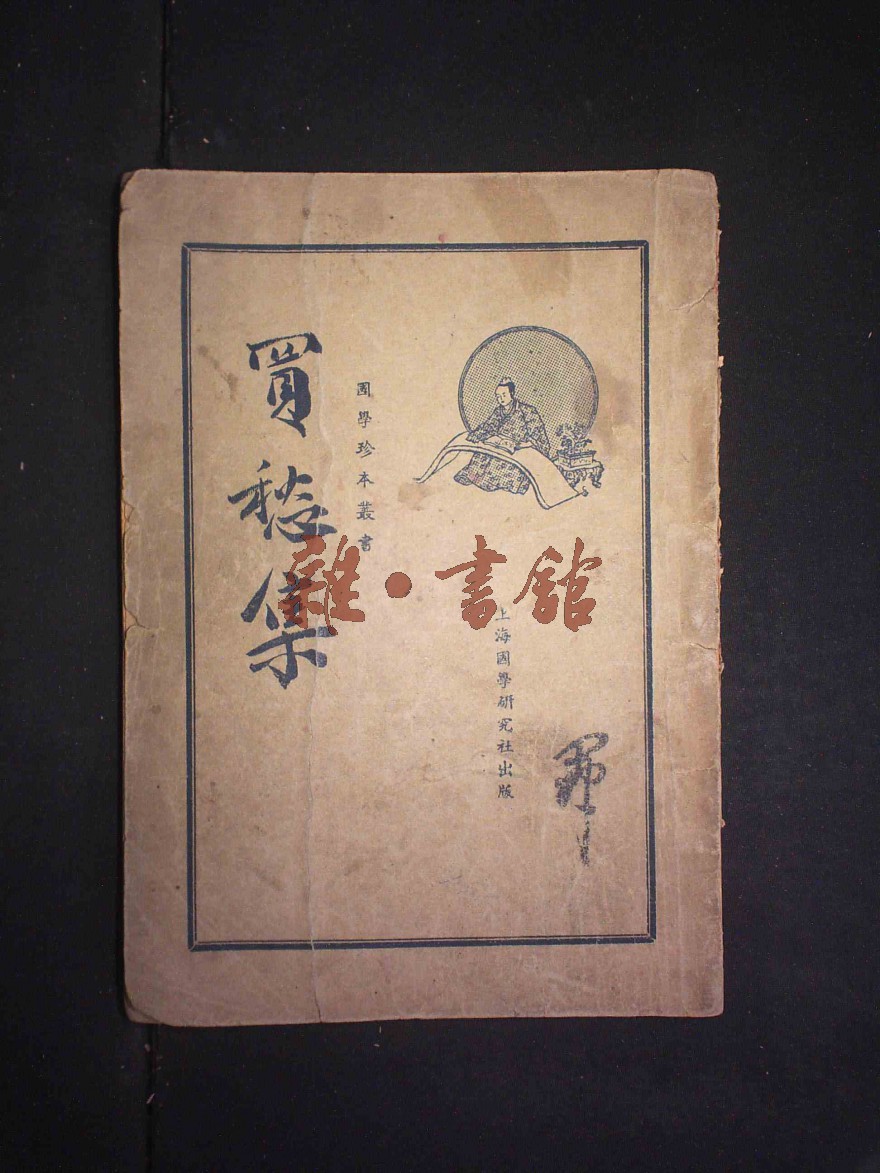 上海國學研究社出版
國學珍本叢書
買愁集
雜·書館